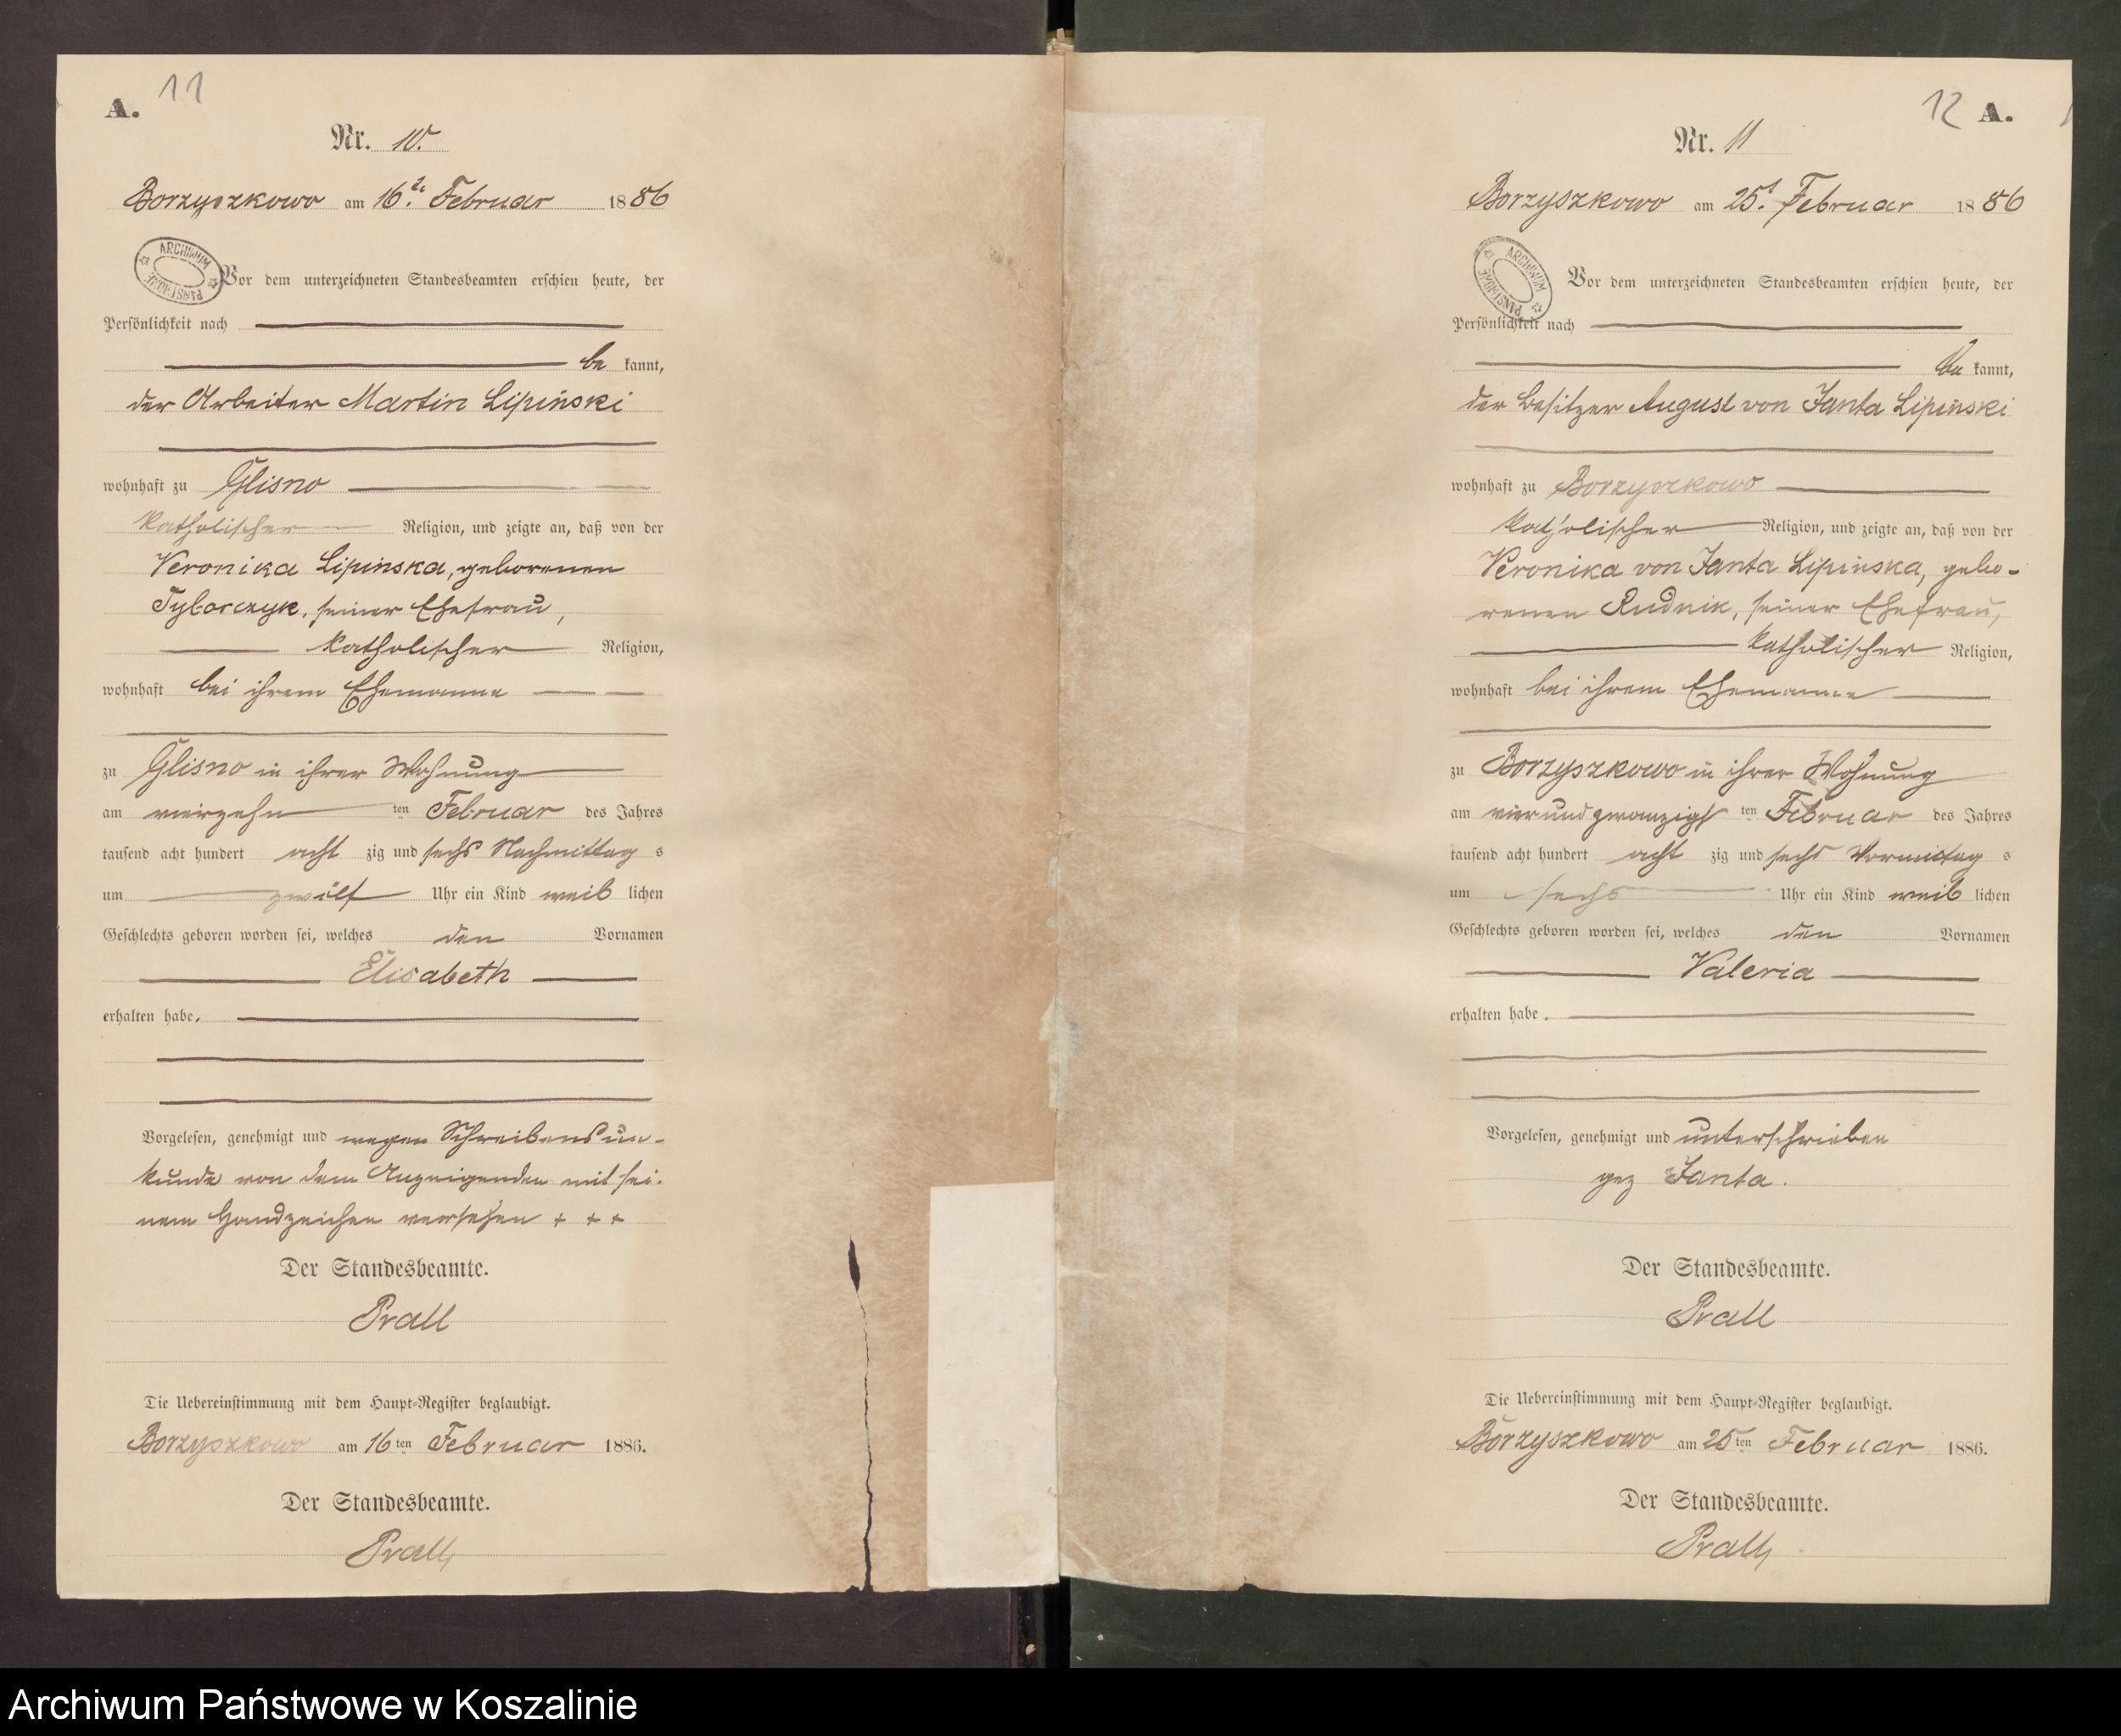 A. 11
Nr. 10.
Borzyszkowo am 16ten Februar 1886
ARCHIWUM PAŃSTWOWE
Vor dem unterzeichneten Standesbeamten erschien heute, der
Persönlichkeit nach
be kannt,
der Arbeiter Martin Lipinski
wohnhaft zu Glisno
katholischer Religion, und zeigte an, daß von der
Veronika Lipinska, geborenen
Tyborczyk, seiner Ehefrau,
katholischer Religion,
wohnhaft bei ihrem Ehemanne
zu Glisno in ihrer Wohnung
am vierzehn ten Februar des Jahres
tausend acht hundert acht zig und sechs Nachmittag s
um zwölf Uhr ein Kind weib lichen
Geschlechts geboren worden sei, welches den Vornamen
Elisabeth
erhalten habe.
Vorgelesen, genehmigt und wegen Schreibensun-
kunde von dem Anzeigenden mit sei-
nem Handzeichen versehen + + +
Der Standesbeamte.
Prall
Die Uebereinstimmung mit dem Haupt-Register beglaubigt.
Borzyszkowo am 16ten Februar 1886.
Der Standesbeamte.
Prall
12 A.
Nr. 11
Borzyszkowo am 25t. Februar 1886
ARCHIWUM PAŃSTWOWE
Vor dem unterzeichneten Standesbeamten erschien heute, der
Persönlichkeit nach
be kannt,
der Besitzer August von Janta Lipinski
wohnhaft zu Borzyszkowo
katholischer Religion, und zeigte an, daß von der
Veronika von Janta Lipinska, gebo-
renen Rudnik, seiner Ehefrau,
katholischer Religion,
wohnhaft bei ihrem Ehemanne
zu Borzyszkowo in ihrer Wohnung
am vierundzwanzigs ten Februar des Jahres
tausend acht hundert acht zig und sechs Vormittag s
um sechs Uhr ein Kind weib lichen
Geschlechts geboren worden sei, welches den Vornamen
Valeria
erhalten habe.
Vorgelesen, genehmigt und unterschrieben
gez Janta.
Der Standesbeamte.
Prall
Die Uebereinstimmung mit dem Haupt-Register beglaubigt.
Borzyszkowo am 25ten Februar 1886.
Der Standesbeamte.
Prall
Archiwum Państwowe w Koszalinie